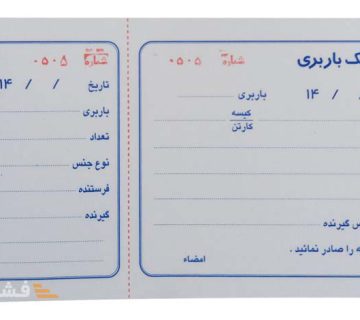 شماره ۰۵۰۵
تاریخ / / ۱۴
باربری
تعداد
نوع جنس
فرستنده
گیرنده
ک باربری
شماره ۰۵۰۵
/ ۱۴ باربری
کیسه
کارتن
س گیرنده
ه را صادر نمائید .
امضاء
فش